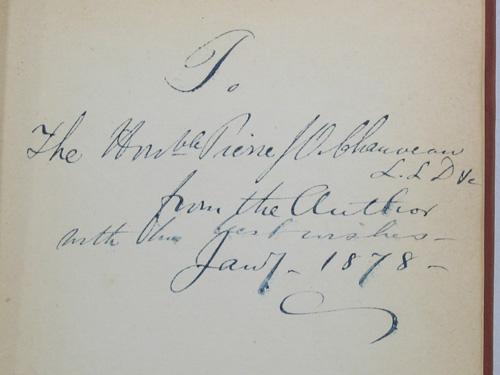 To
The Honble Pierre J O. Chauveau
L.L.D &c
from the Author
with his best wishes
Jany - 1878 -